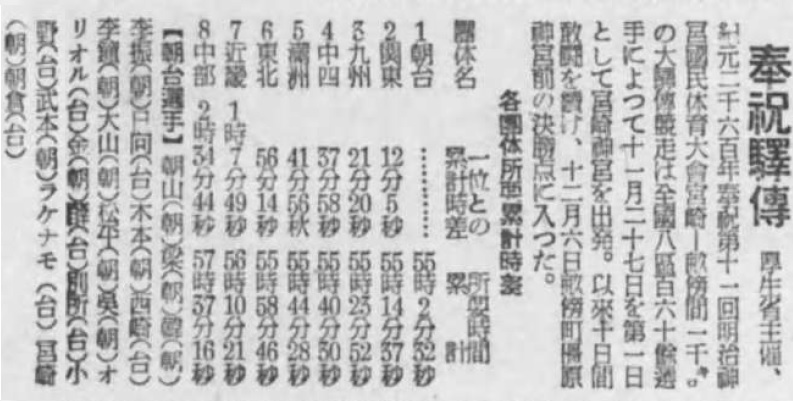 奉祝驛傳 厚生省主催、
紀元二千六百年奉祝第十一回明治神
宮國民体育大會宮崎―畝傍間一千㌔
の大驛傳競走は全國八區百六十餘選
手によつて十一月二十七日を第一日
として宮崎神宮を出発。以來十日間
敢闘を續け、十二月六日畝傍町橿原
神宮前の決勝点に入つた。
各團体所要累計時差
團体名 一位との累計時差 所要時間累計
1朝台 ………… 55時2分32秒
2関東 12分5秒 55時14分37秒
3九州 21分20秒 55時23分52秒
4中四 37分58秒 55時40分30秒
5満洲 41分56秋 55時44分28秒
6東北 56分14秒 55時58分46秒
7近畿 1時7分49秒 56時10分21秒
8中部 2時34分44秒 57時37分16秒
【朝台選手】朝山(朝)梁(朝)韓(朝)
李振(朝)日向(台)木本(朝)西崎(台)
李鎭(朝)大山(朝)松平(朝)呉(朝)オ
リオル(台)金(朝)薛(台)別所(台)小
野(台)武本(朝)ラケナモ(台)宮崎
(朝)朝倉(台)